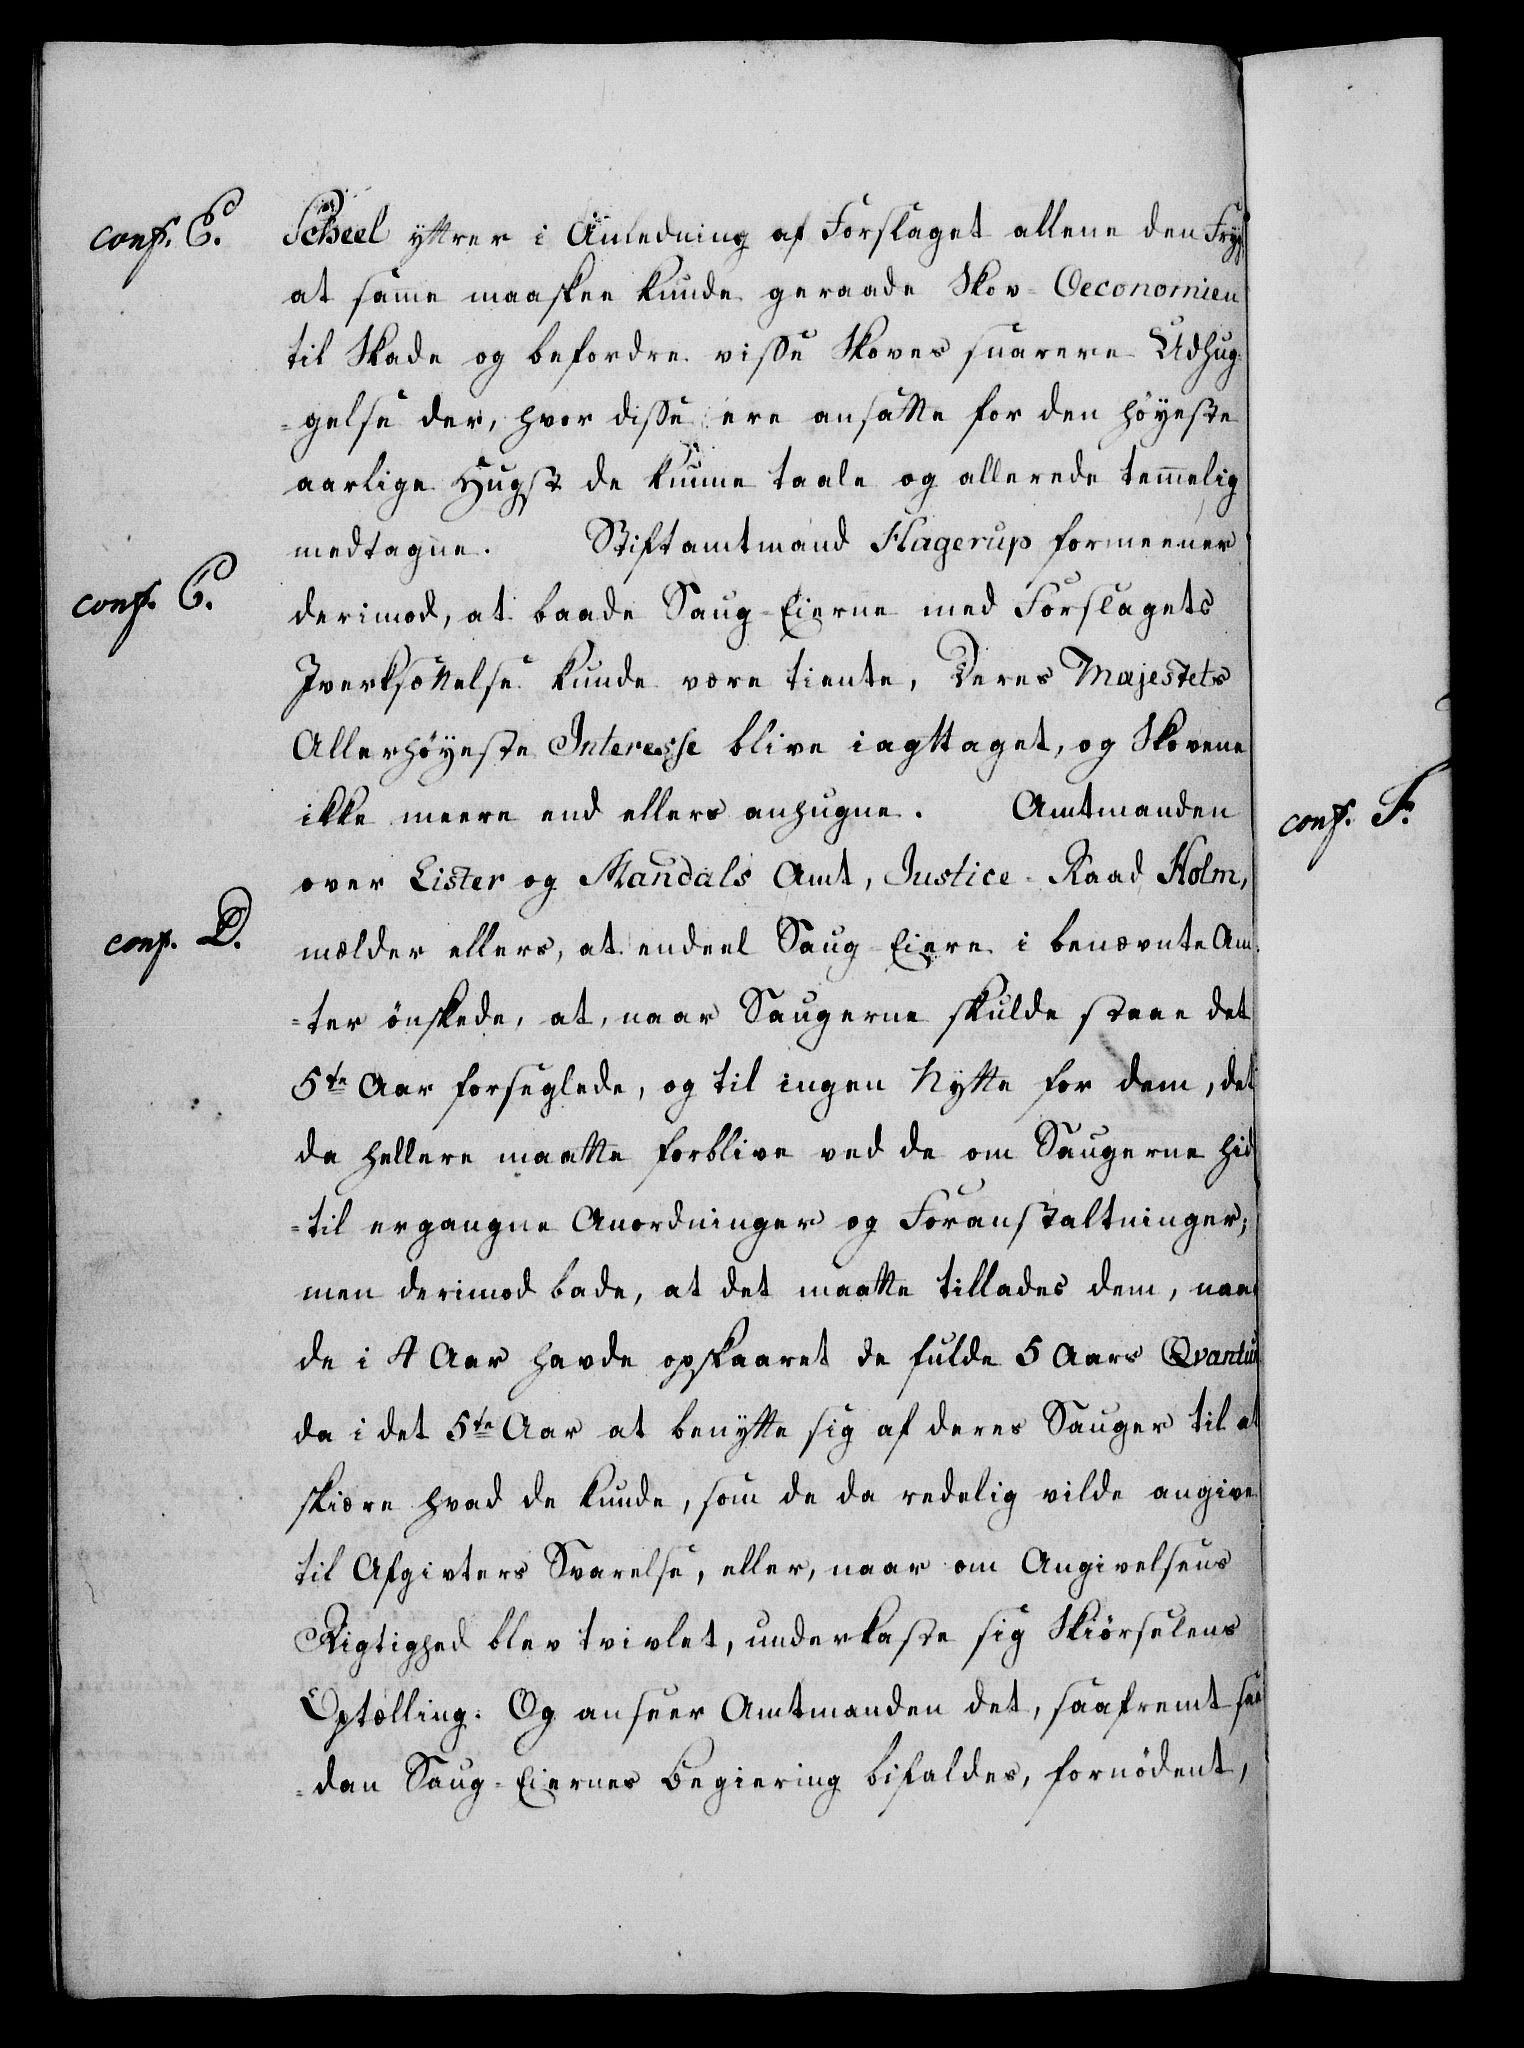 conf. E.
Scheel yttrer i Anledning af Forslaget allene den Frygt,
at samme maaskee kunde geraade Skov-Oeconomien
til Skade og befordre visse Skoves snarere Udhug-
-gelse der, hvor disse ere ansatte for den höyeste
aarlige Hugst de kunne taale og allerede temmelig
medtagne. Stiftamtmand Hagerup formeener
conf. C.
derimod, at baade Saug-Eierne med Forslagets
Iverksættelse kunde være tiente, Deres Majestets
Allerhöyeste Interesse blive iagttaget, og Skovene
ikke meere end ellers anhugne. Amtmanden
conf. F.
over Lister og Mandals Amt, Justice-Raad Holm,
conf. D.
mælder ellers, at endeel Saug-Eiere i benævnte Am-
-ter önskede, at, naar Saugerne skulde staae det
5te Aar forseglede, og til ingen Nytte for dem, det
da hellere maatte forblive ved de om Saugerne hid-
-til ergangne Anordninger og Foranstaltninger;
men derimod bade, at det maatte tillades dem, naar
de i 4 Aar havde opskaaret de fulde 5 Aars Qvantum
da i det 5te Aar at benytte sig af deres Sauger til at
skiære hvad de kunde, som de da redelig vilde angive
til Afgivters Svarelse, eller, naar om Angivelsens
Rigtighed blev tvivlet, underkaste sig Skiörselens
Optælling. Og anseer Amtmanden det, saafremt saa-
-dan Saug-Eiernes Begiering bifaldes, fornödent,